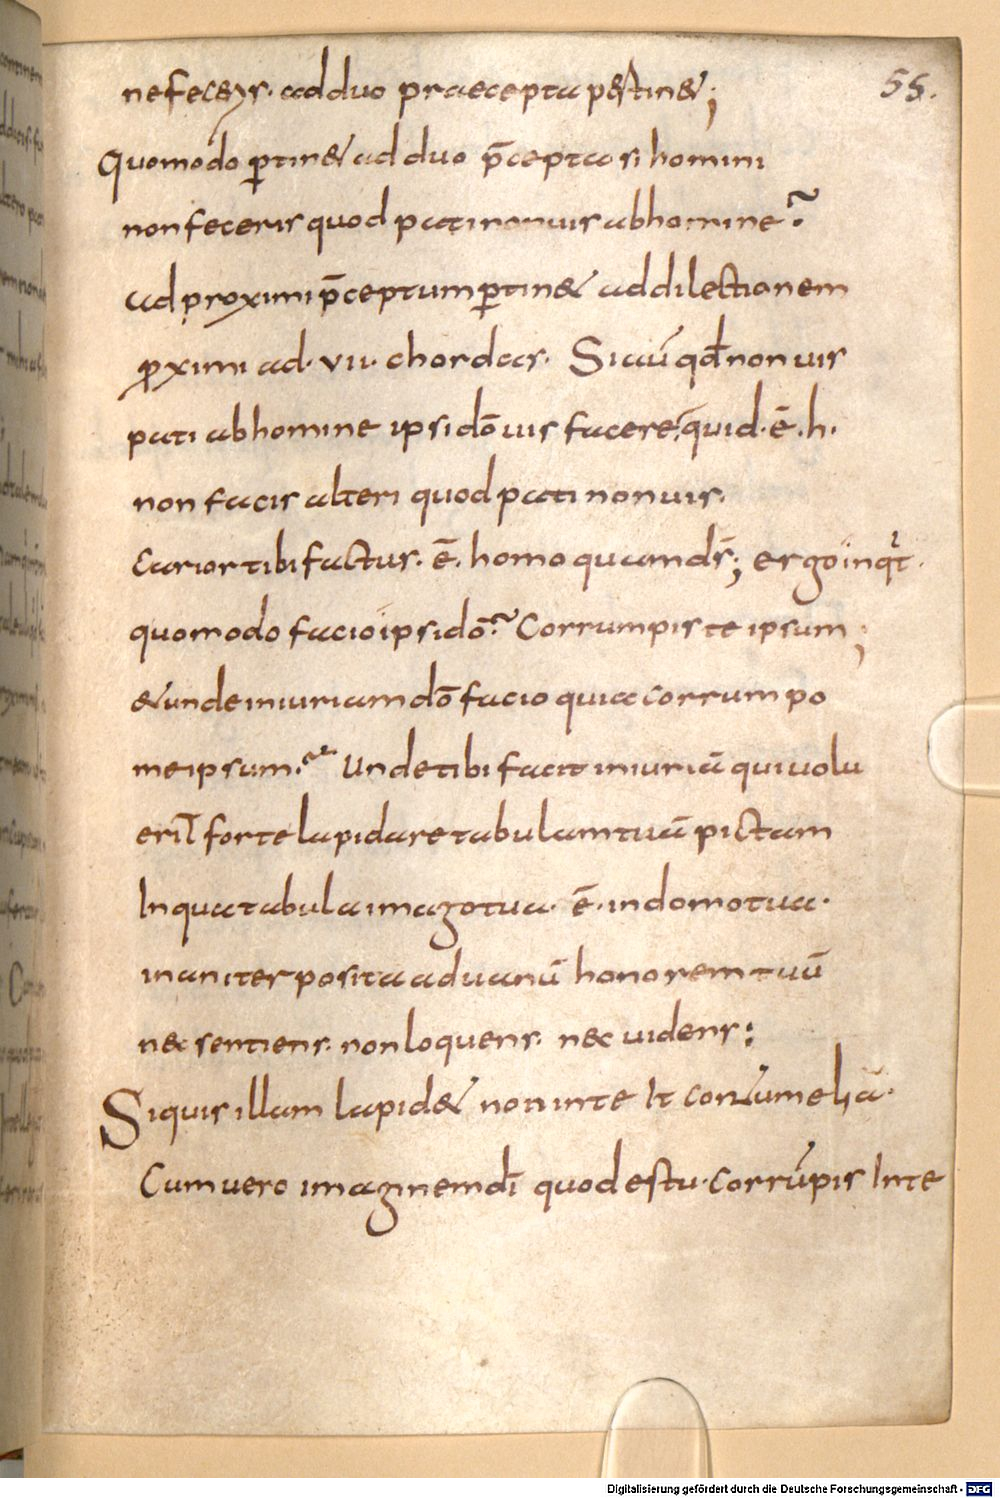 55.
ne feceris. ad duo praecepta p&tin&;
Quomodo p̱tin& ad duo p̄cepta si homini
non feceris quod pati non uis ab homine?
ad proximi p̄ceptum p̱tin& ad dilectionem
ꝓximi ad. VII. chordas. Si aū qđ non uis
pati ab homine ipsi dō uis facere, quid. ē. h.
non facis alteri quod pati non uis.
Carior tibi factus. ē. homo quam ds̄; ergo inqt.
quomodo facio ipsi dō? Corrumpis te ipsum;
& unde iniuriam dō facio quia corrumpo
me ipsum? Unde tibi facit iniuriā qui uolu
erit forte lapidare tabulam tuā pictam
In qua tabula imago tua. ē. in domo tua.
inaniter posita ad uanū honorem tuū
nec sentiens. non loquens. nec uidens:
Si quis illam lapid& non in te fit contumeliā.
Cum uero imaginem dī quod es tu. corrūpis In te
Digitalisierung gefördert durch die Deutsche Forschungsgemeinschaft - DFG